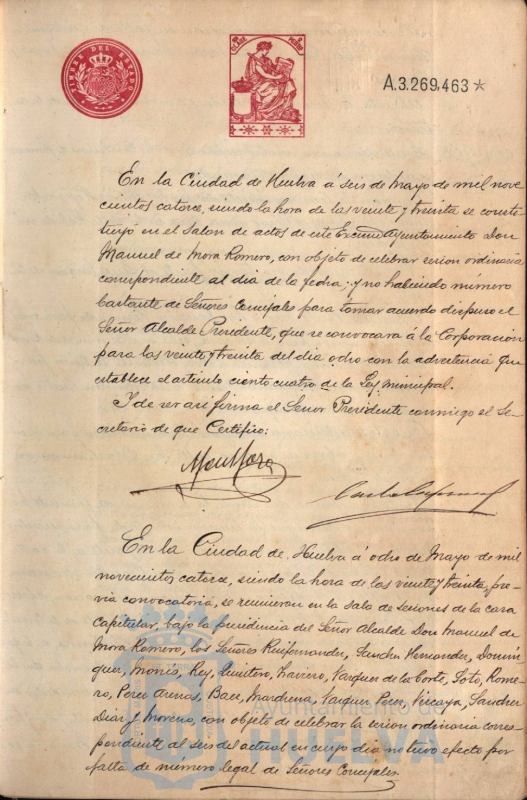 TIMBRE DEL ESTADO
A.3.269.463*
En la Ciudad de Huelva á seis de Mayo de mil nove
cientos catorce, siendo la hora de las veinte y treinta se consti
tuyó en el Salon de actos de este Excmo Ayuntamiento Don
Manuel de Mora Romero, con objeto de celebrar sesion ordinaria
correspondiente al dia de la fecha; y no habiendo número
bastante de Señores Concejales para tomar acuerdo dispuso el
Señor Alcalde Presidente, que se convocara á la Corporacion
para las veinte y treinta del dia ocho con la advertencia que
establece el articulo ciento cuatro de la Ley municipal.
Y de ser asi firma el Señor Presidente conmigo el Se-
cretario de que Certifico:
En la Ciudad de Huelva á ocho de Mayo de mil
novecientos catorce, siendo la hora de las veinte y treinta, pre-
via convocatoria, se reunieron en la sala de sesiones de la casa
capitular, bajo la presidencia del Señor Alcalde Don Manuel de
Mora Romero, los Señores Ruifernandez, Sanchez Hernandez, Domin-
guez, Monis, Rey, Quintero, Navarro, Vazquez de la Corte, Soto, Rome-
ro, Perez Arenas, Baez, Marchena, Vazquez Perez, Vizcaya, Sanchez
Diaz y Moreno, con objeto de celebrar la sesion ordinaria corres-
pondiente al seis del actual en cuyo dia no tuvo efecto por
falta de número legal de Señores Concejales.
Ayuntamiento de
HUELVA